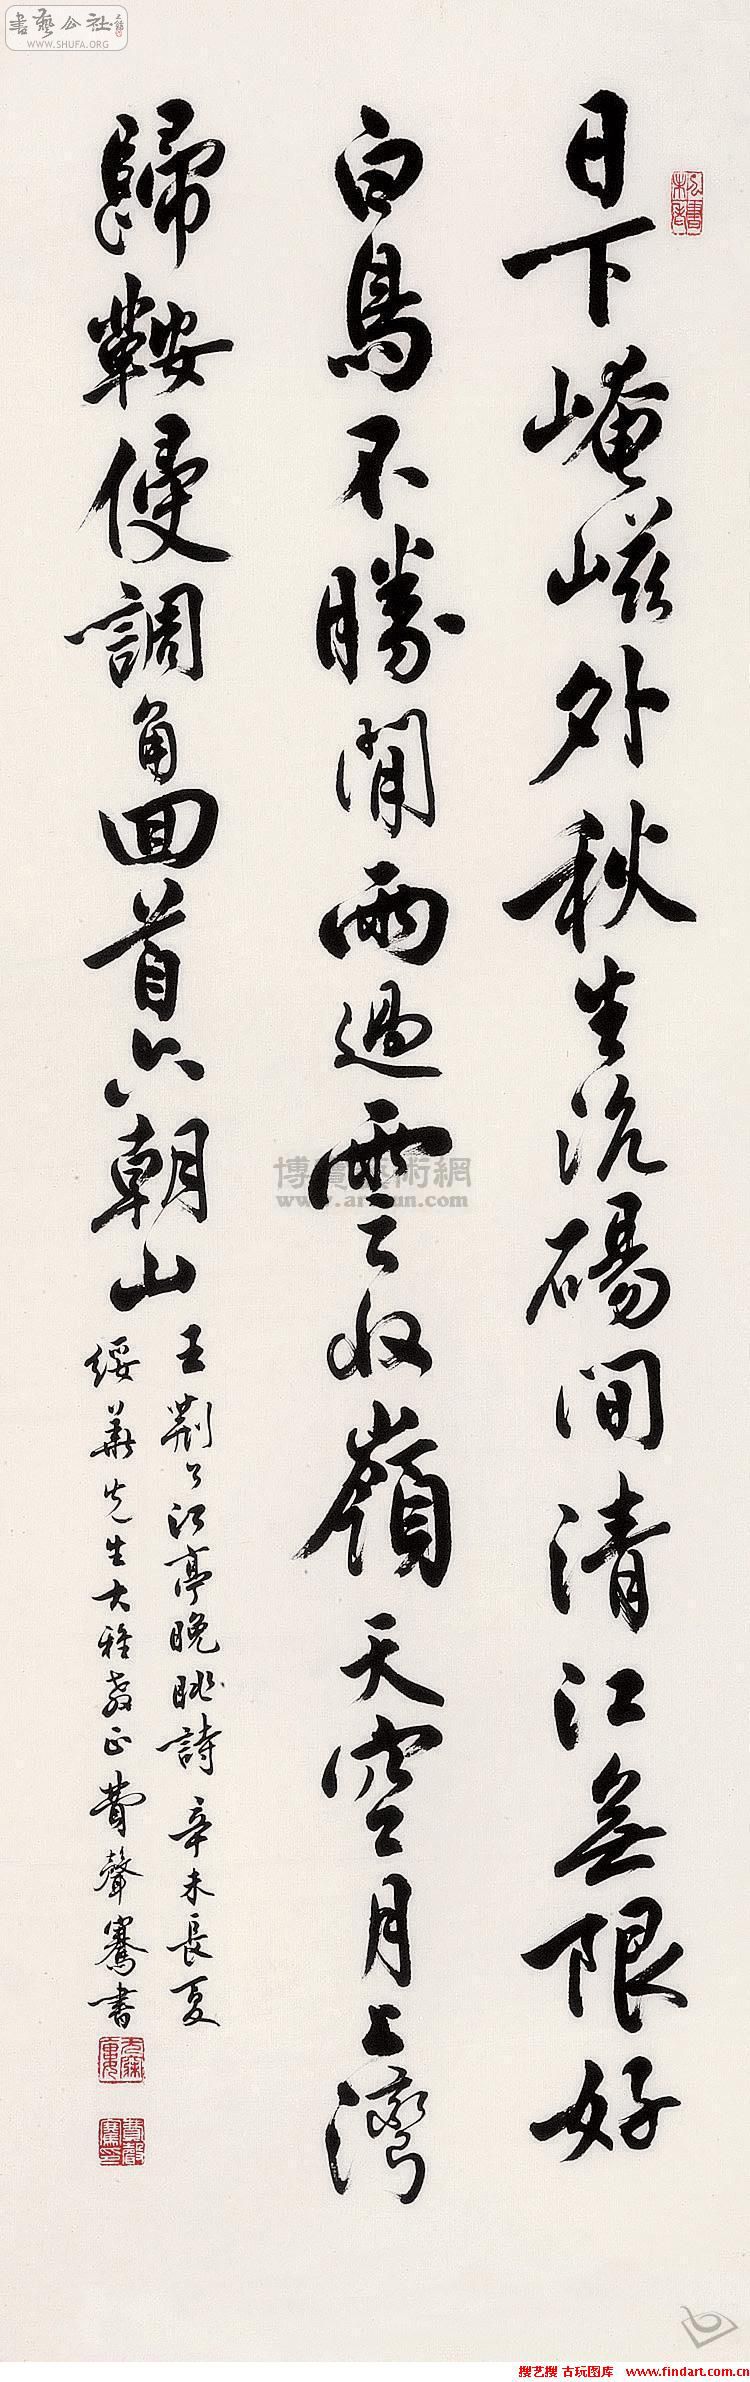 日下崦嵫外秋生沆碭間清江無限好
白鳥不勝閒雨過雲收嶺天空月上灣
歸鞍侵調角回首六朝山
王荆公江亭晚眺詩 辛未長夏
綏華先生大雅教正費聲騫書
費聲騫印
書藝公社
www.SHUFA.ORG
博寶藝術網
www.artxun.com
搜艺搜 古玩图库 www.findart.com.cn